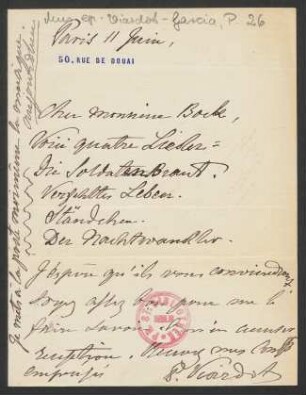 Mus. ep. Viardot-Garcia, P. 26
Paris 11 Juin,
50, RUE DE DOUAI
Cher Monsieur Bock,
Voici quatre Lieder =
Die Soldatenbraut.
Verfehltes Leben.
Ständchen.
Der Nachtwandler.
J'espère qu'ils vous conviendront
Soyez assez bon pour me le
faire savoir
réception. Recevez mes
empressés
P. Viardot
Je mets à la poste moi-même la musique
aujourd'hui